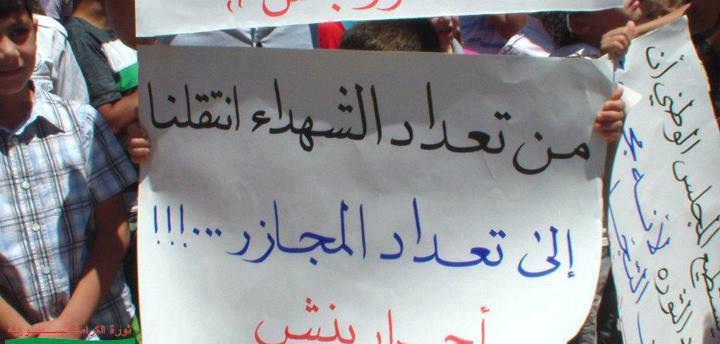 من تعداد الشهداء انتقلنا
إلى تعداد المجازر ...!!!
أحرار بنش
المجلس الوطني أن
الثورة لأنه
ثورة الكرامة